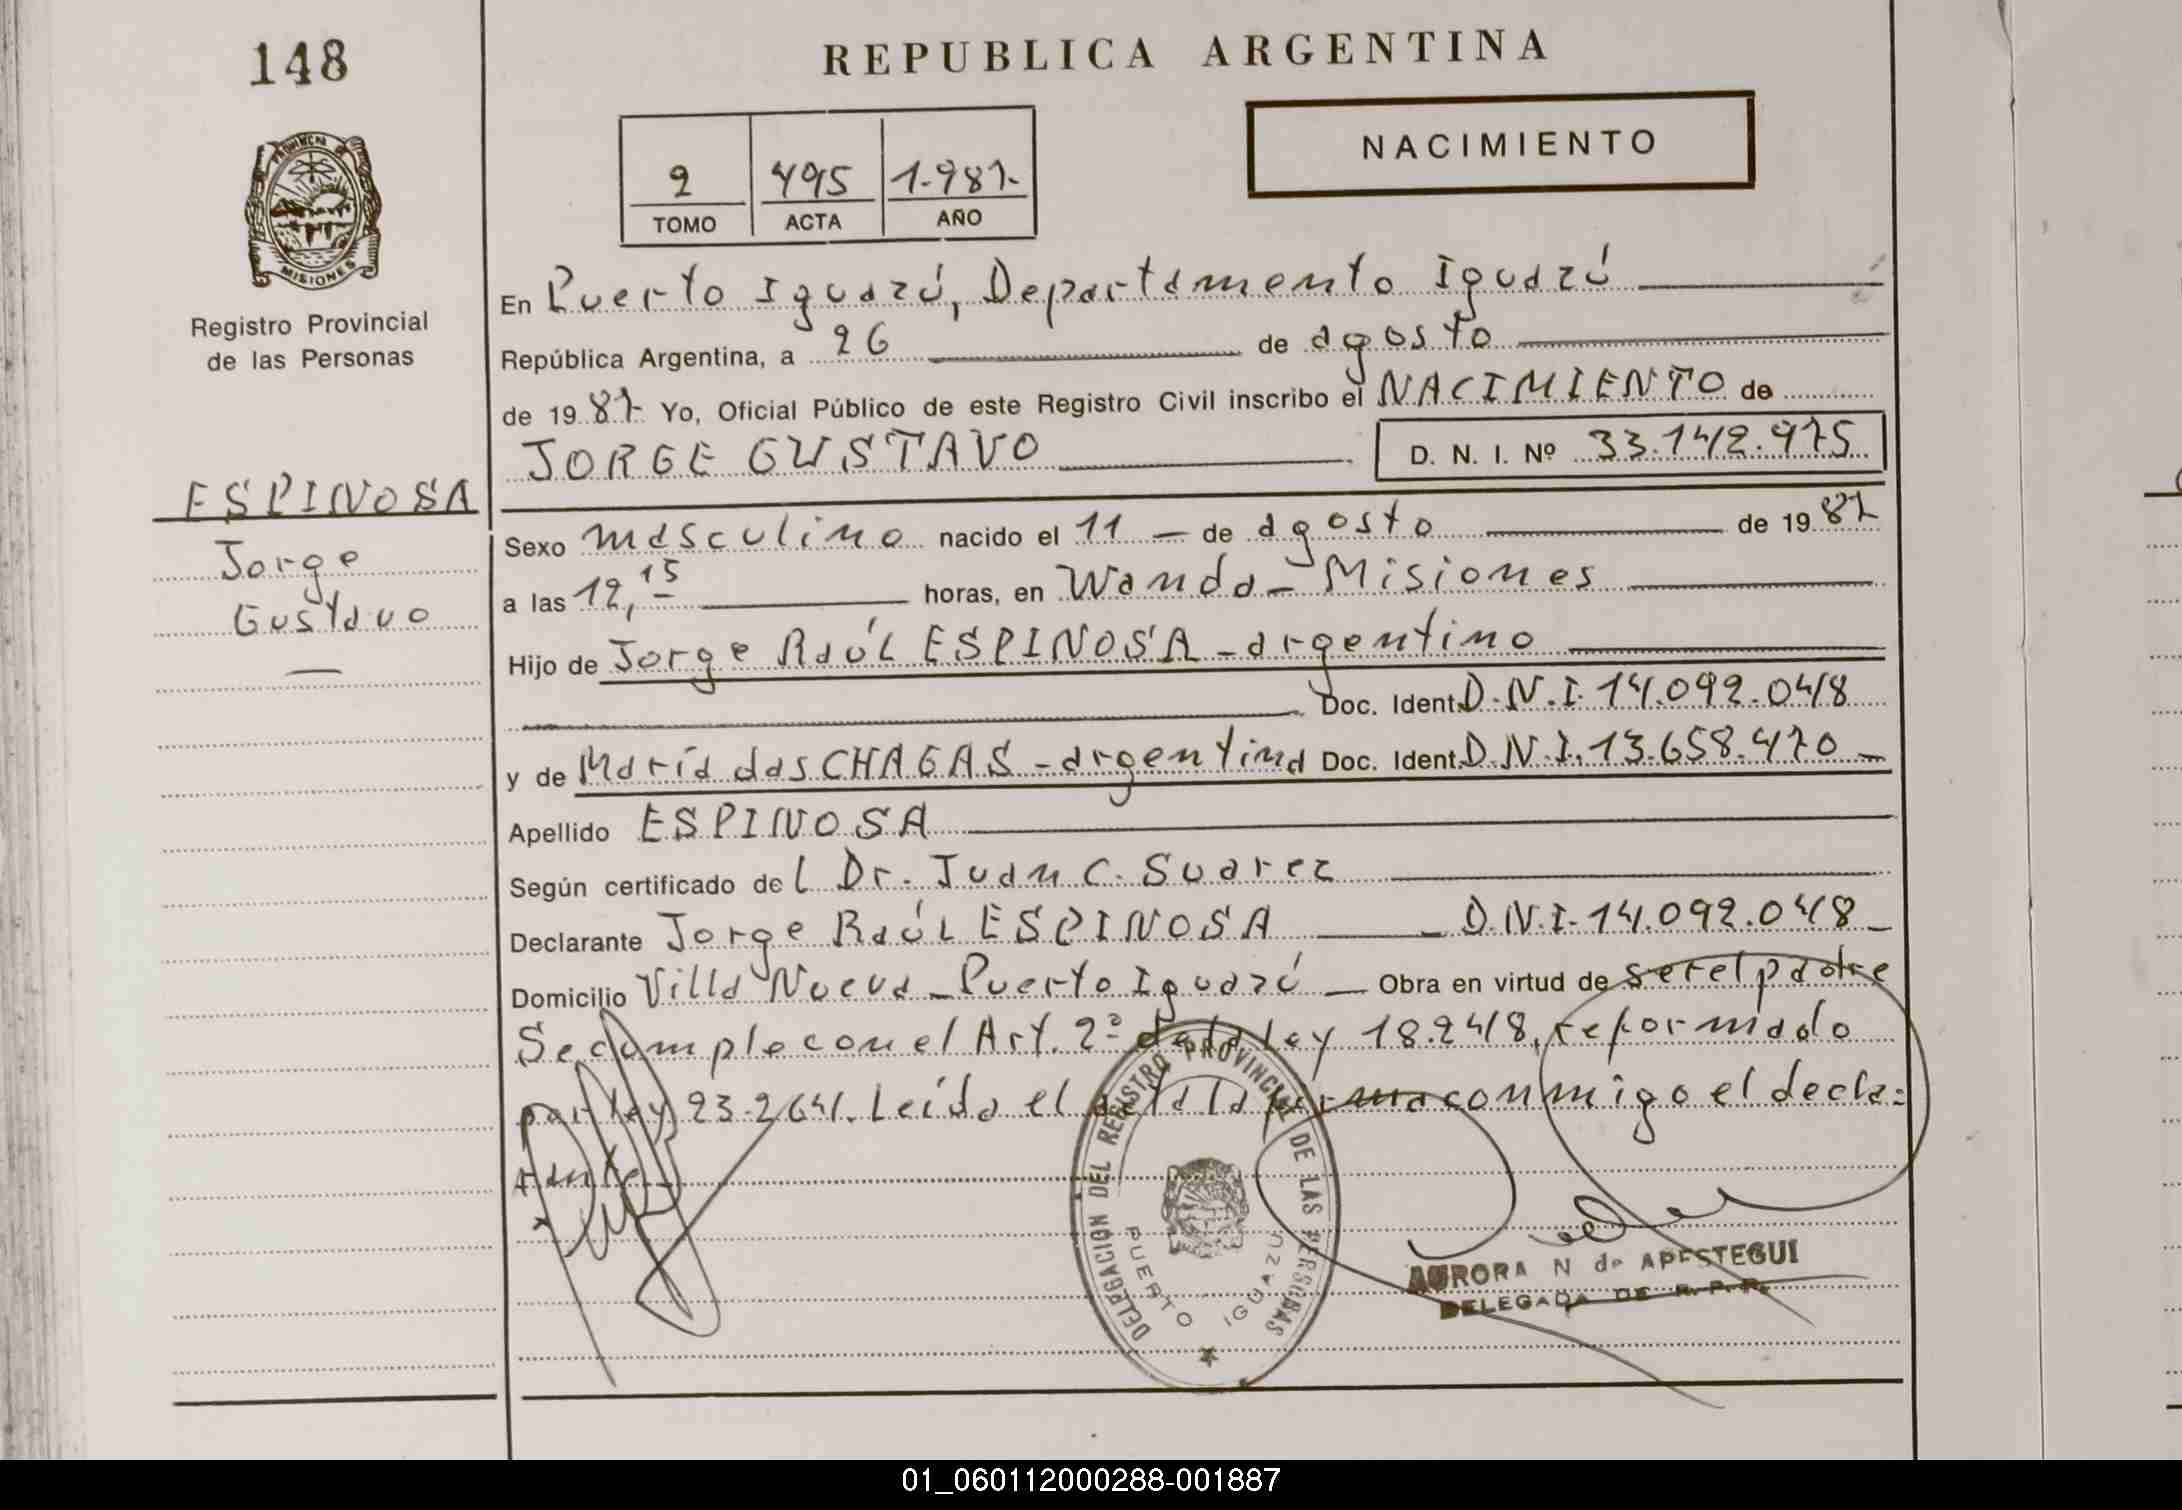 148
REPUBLICA ARGENTINA
NACIMIENTO
2 495 1.987.
TOMO ACTA AÑO
PROVINCIA DE
MISIONES
Registro Provincial
de las Personas
En Puerto Iguazú, Departamento Iguazú
República Argentina, a 26 de agosto
de 1987 Yo, Oficial Público de este Registro Civil inscribo el NACIMIENTO de
JORGE GUSTAVO D. N. I. Nº 33.142.975
ESPINOSA
Jorge
Gustavo
Sexo masculino nacido el 11 - de agosto de 1987
a las 12,15 horas, en Wanda - Misiones
Hijo de Jorge Raúl ESPINOSA - argentino
Doc. Ident. D.N.I. 14.092.048
y de María das CHAGAS - argentina Doc. Ident. D.N.I. 13.658.470 -
Apellido ESPINOSA
Según certificado del Dr. Juan C. Suarez
Declarante Jorge Raúl ESPINOSA - D.N.I. 14.092.048 -
Domicilio Villa Nueva - Puerto Iguazú - Obra en virtud de ser el padre
Se cumple con el Art. 2º de la Ley 18.248, reformado
por ley 23.264. Leída el acta la firma conmigo el decla=
rante
DELEGACION DEL REGISTRO PROVINCIAL DE LAS PERSONAS
PUERTO IGUAZU
AURORA N de APESTEGUI
DELEGADA DE R. P. P.
01_060112000288-001887